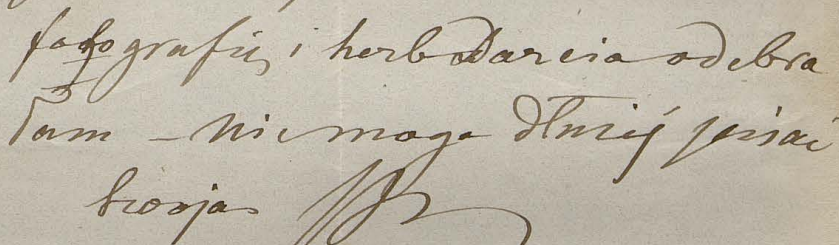 fotografię i herb Darcia odebra
łam – nie mogę dłużéj pisać
twoja